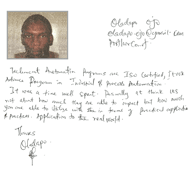 Oladapo Ojo
oladapo.ojo@gmail.com
Testament Automation Programs are ISO Certified,
Advance Program in Industrial & Process Automation
It was a time well spent. Personally I think it's
not about how much they are able to impact but how much
you are able to with the in terms of practical application
& practice Application to the real world.
Thanks
Oladapo